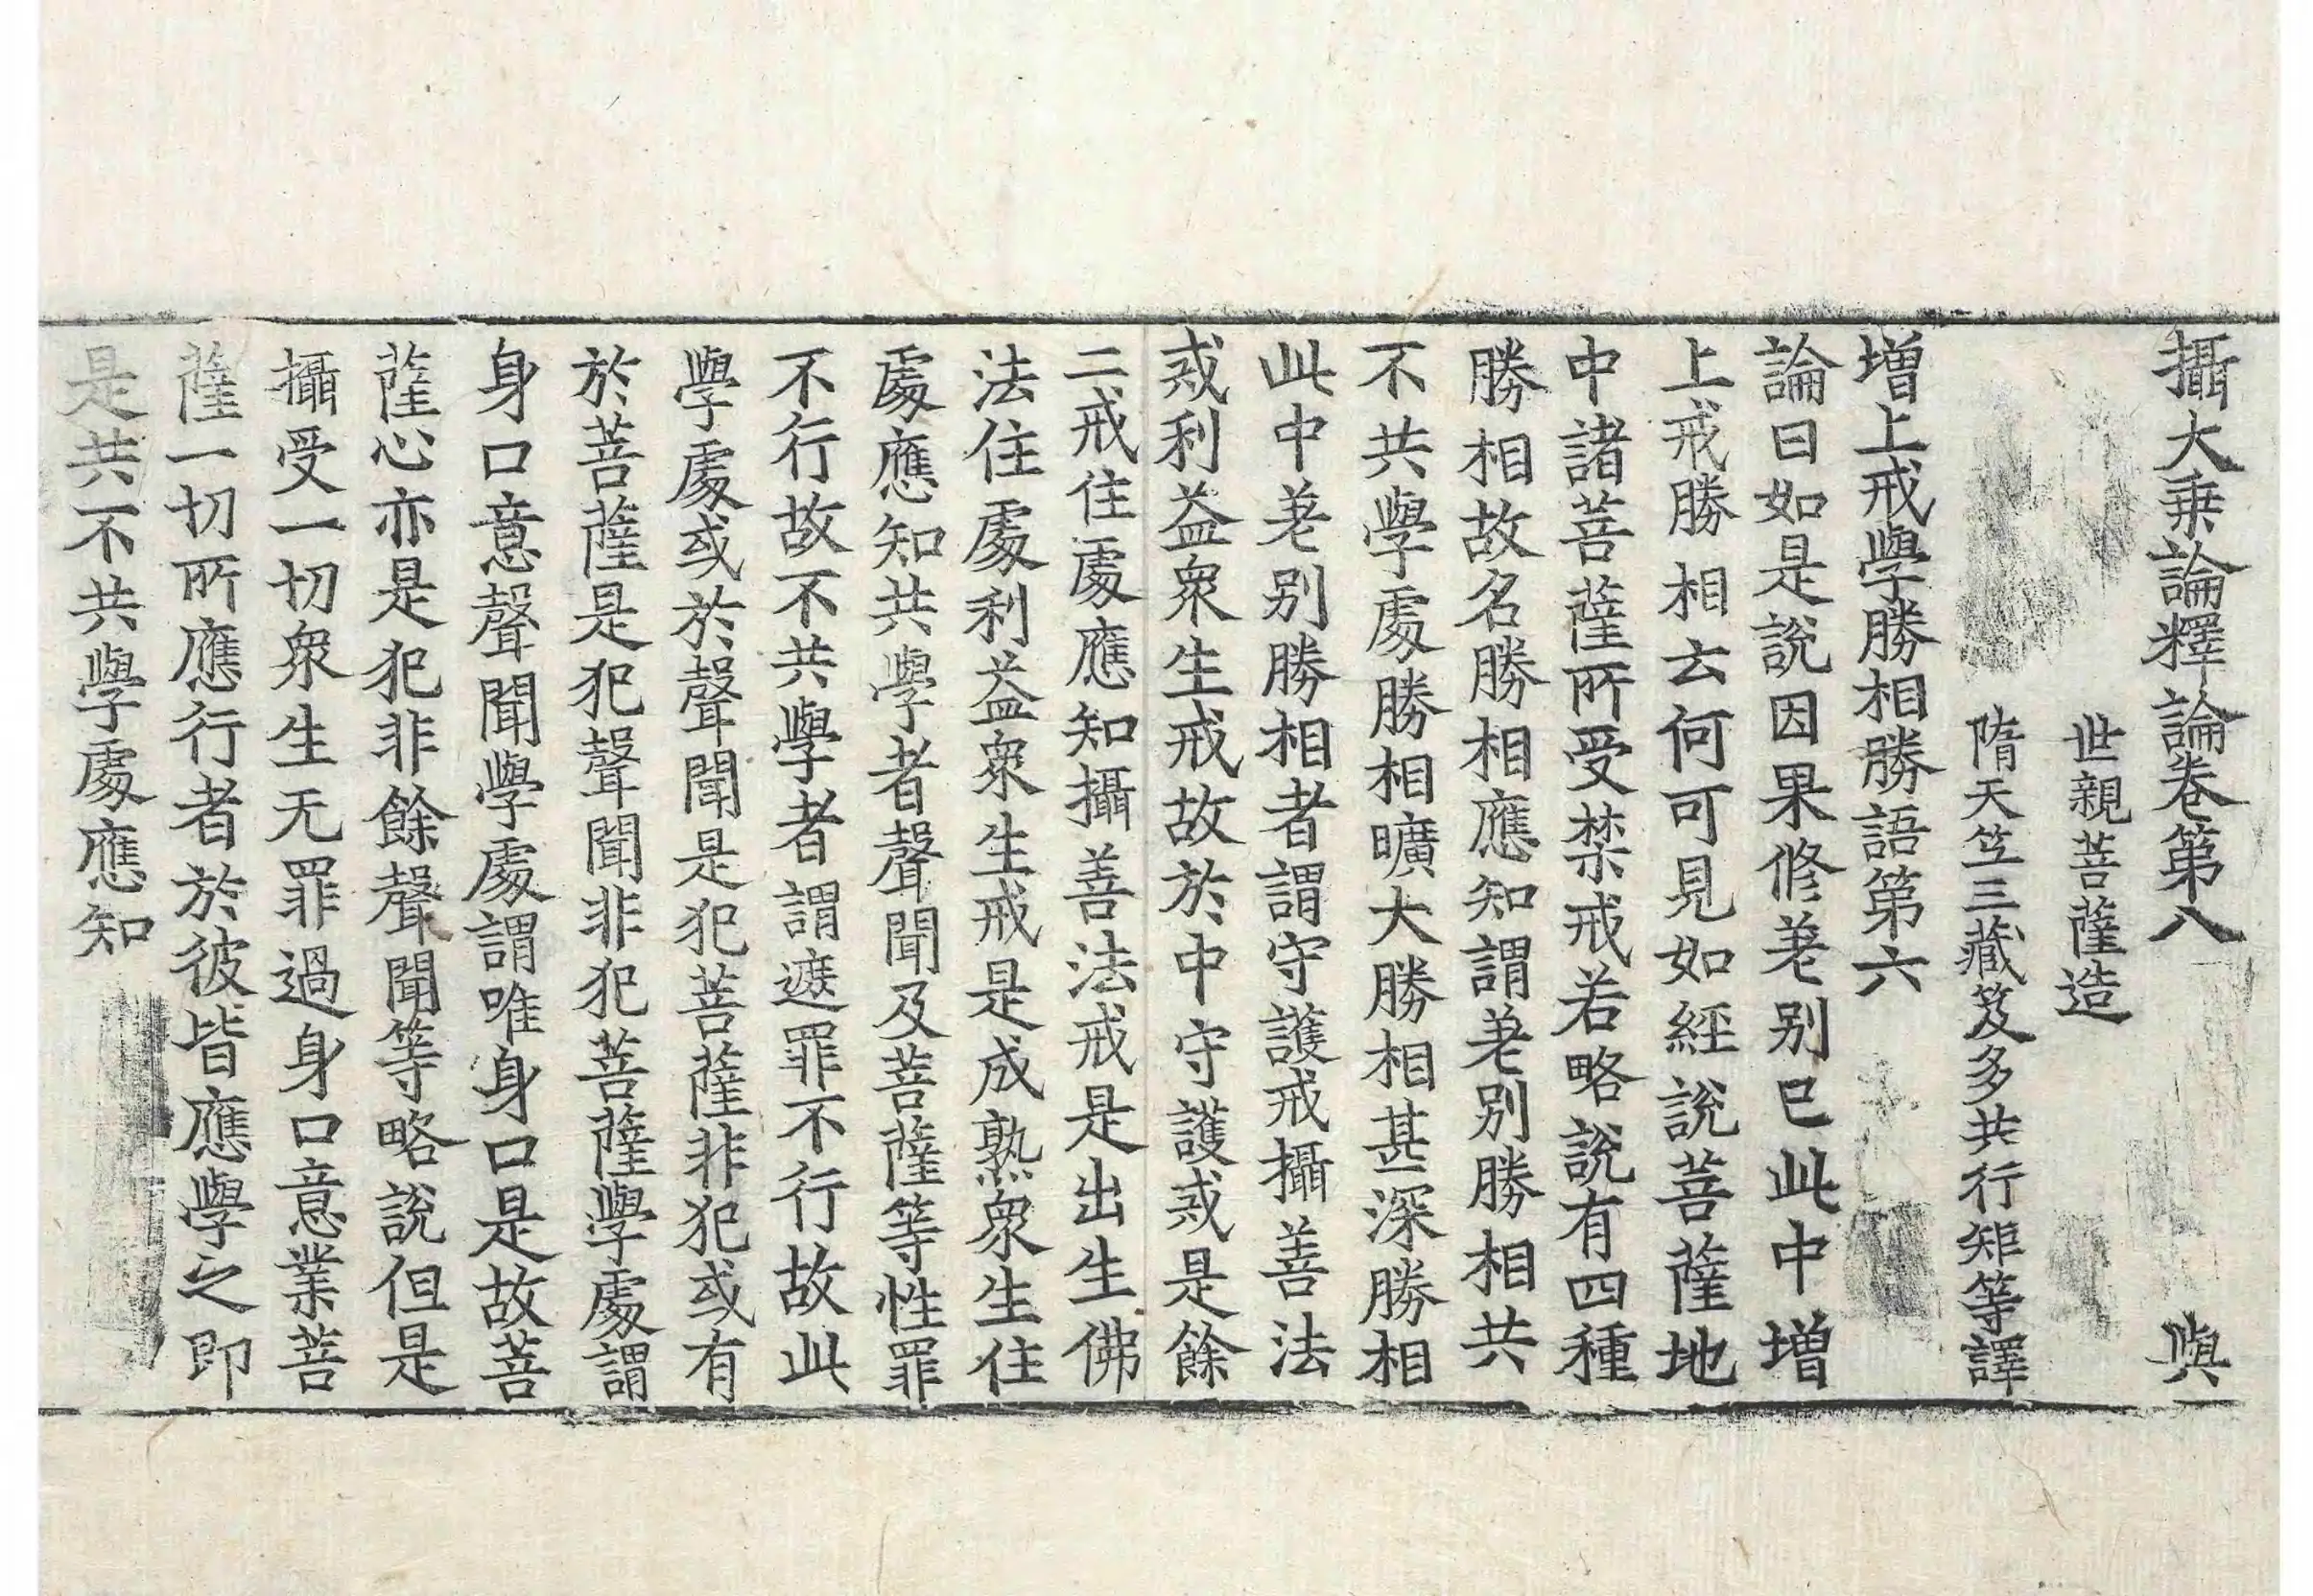 攝大乗論釋論卷第八 與
世親菩薩造
隋天笠三藏笈多共行矩等譯
增上戒學勝相勝語第六
論曰如是說因果修差别已此中增
上戒勝相云何可見如經說菩薩地
中諸菩薩所受禁戒若略說有四種
勝相故名勝相應知謂差别勝相共
不共學處勝相曠大勝相甚深勝相
此中差别勝相者謂守護戒攝善法
戒利益衆生戒故於中守護戒是餘
二戒住處應知攝善法戒是出生佛
法住處利益衆生戒是成熟衆生住
處應知共學者聲聞及菩薩等性罪
不行故不共學者謂遮罪不行故此
學處或於聲聞是犯菩薩非犯或有
於菩薩是犯聲聞非犯菩薩學處謂
身口意聲聞學處謂唯身口是故菩
薩心亦是犯非餘聲聞等略說但是
攝受一切衆生无罪過身口意業菩
薩一切所應行者於彼皆應學之即
是共不共學處應知